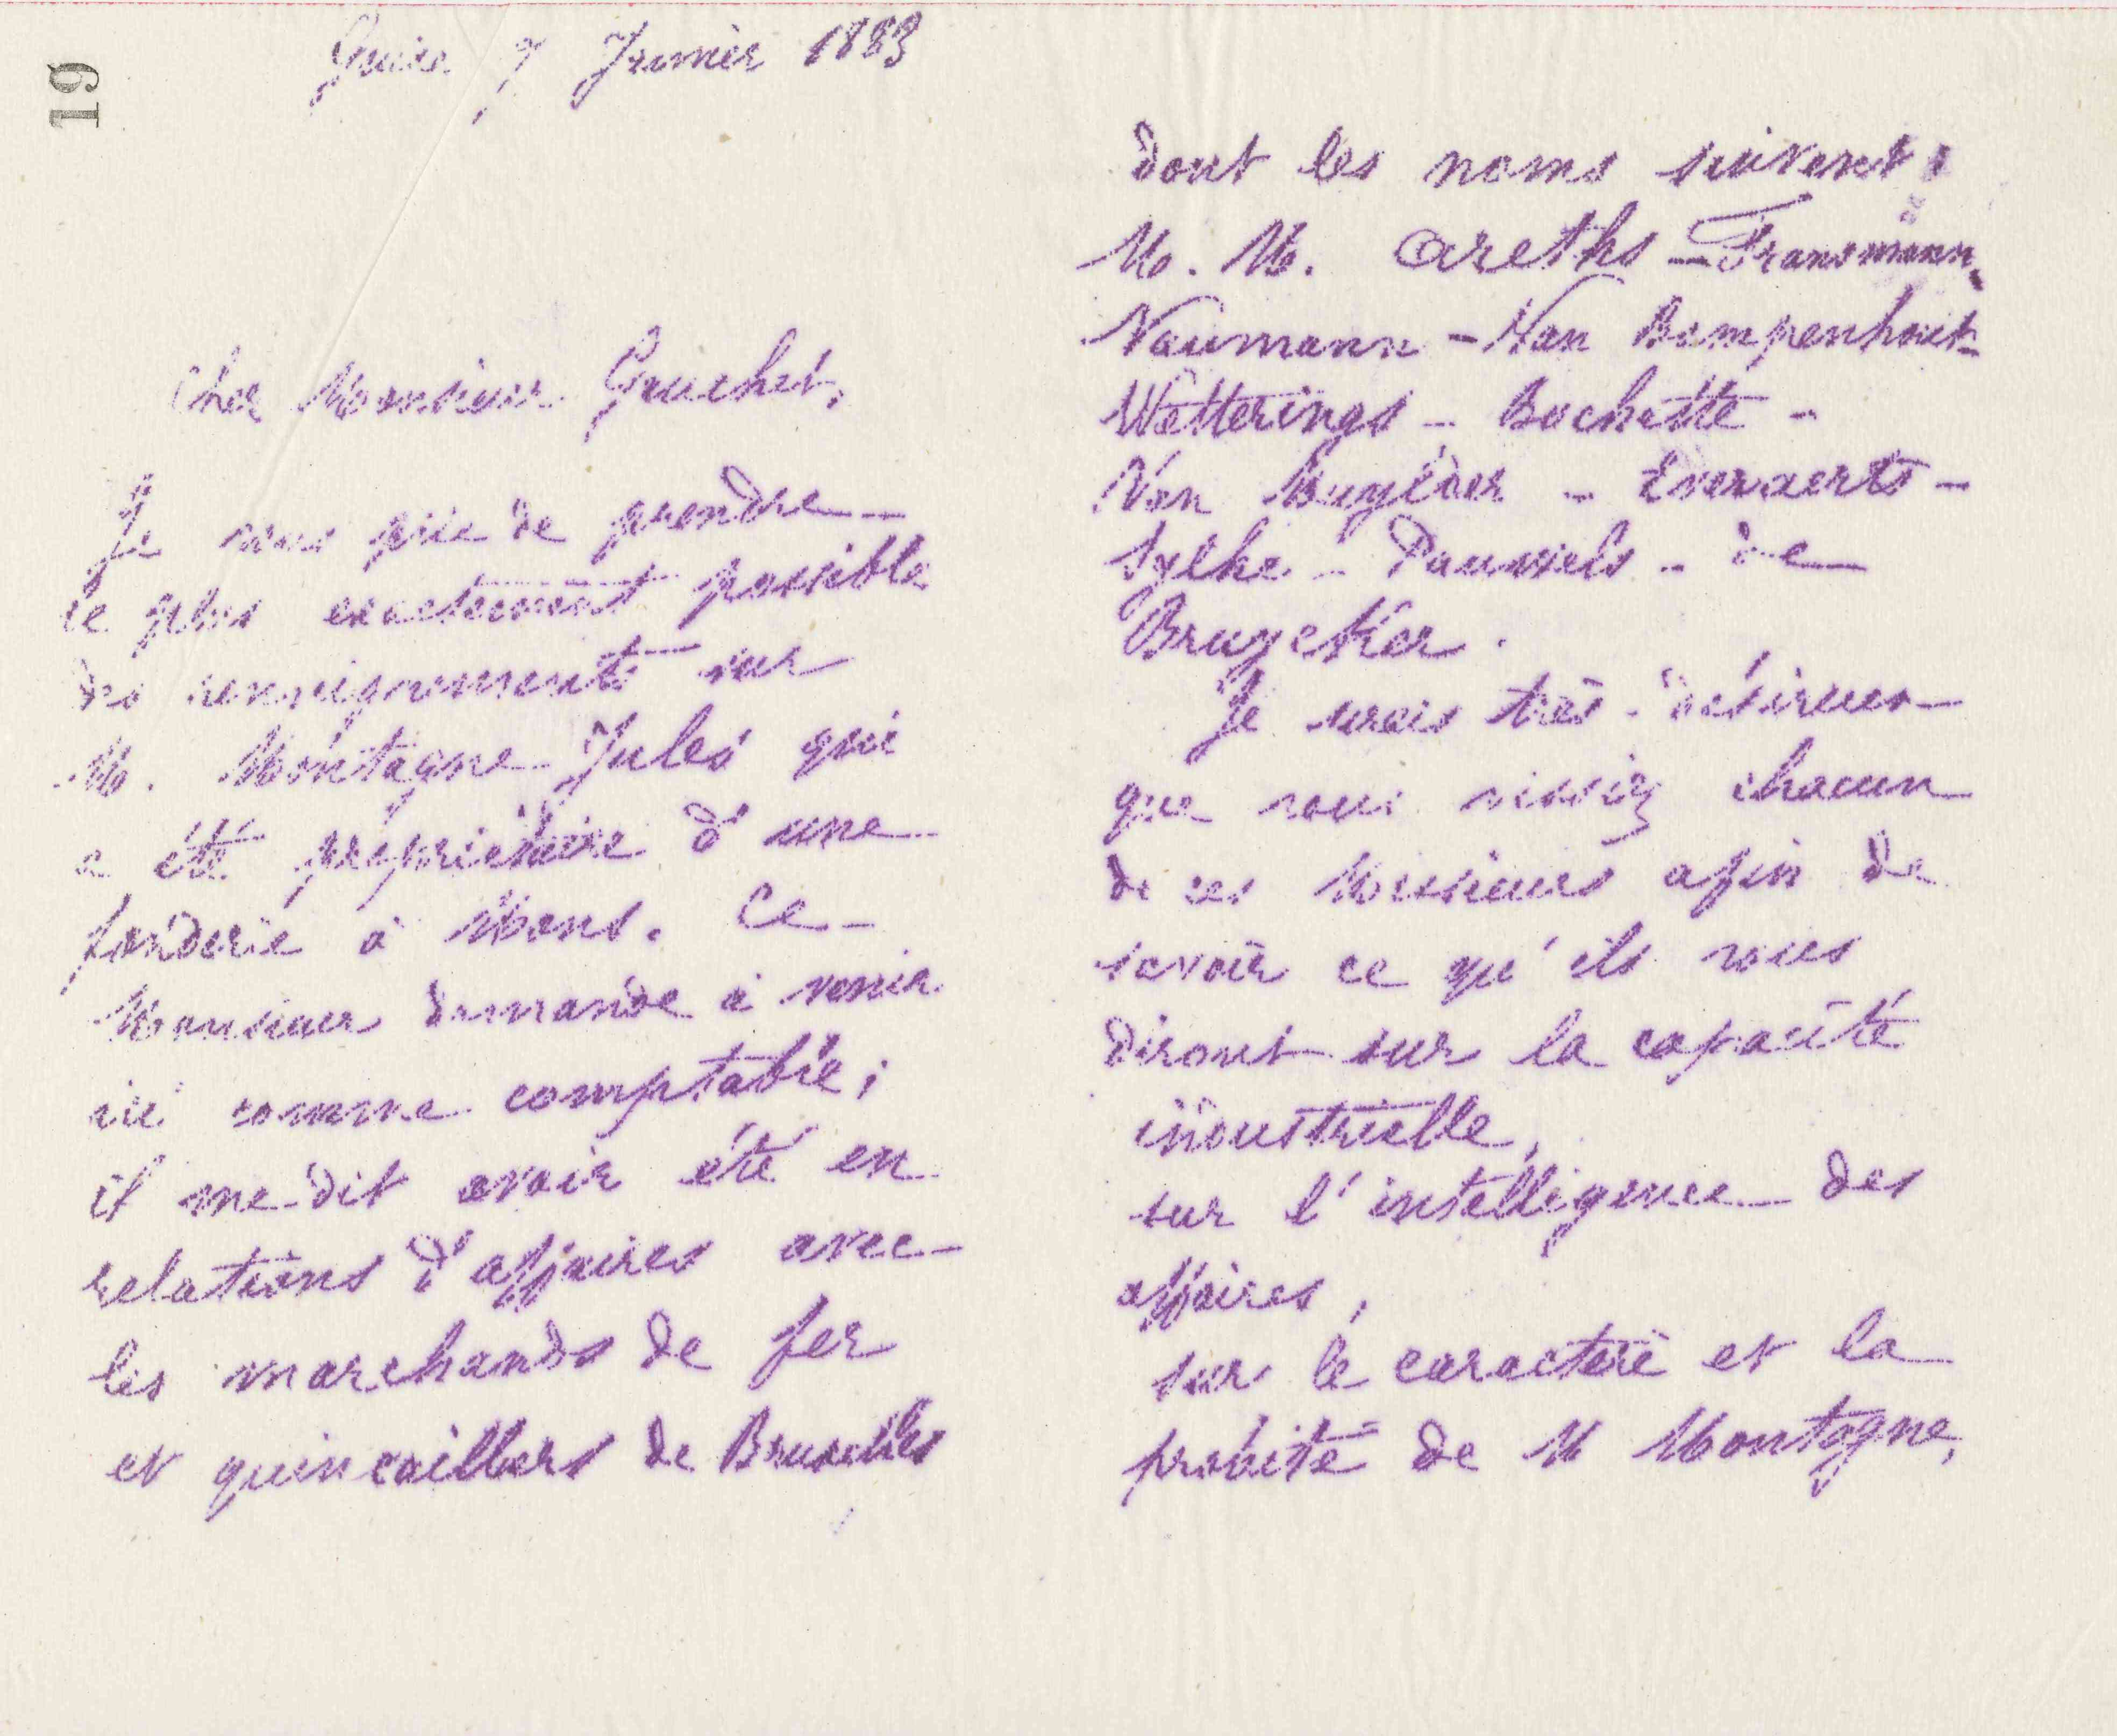 19
Guise 7 Janvier 1883
Cher Monsieur Gauchet,
Je vous prie de prendre
le plus exactement possible
des renseignements sur
M. Montagne Jules qui
a été propriétaire d'une
fonderie à Mons. Ce
Monsieur demande à venir
ici comme comptable;
il me dit avoir été en
relations d'affaires avec
les marchands de fer
et quincailliers de Bruxelles
dont les noms suivent:
M. M. Areths - Fransmann,
Naumann - Van Bempenhout -
Wetterings - Bochette -
Van Muylder - Everaerts -
Sylhe - Pauwels - de
Bruycker.
Je serais très-désireux
que vous vissiez chacun
de ces Messieurs afin de
savoir ce qu'ils vous
diront sur la capacité
industrielle,
sur l'intelligence des
affaires,
sur le caractère et la
probité de M Montagne,